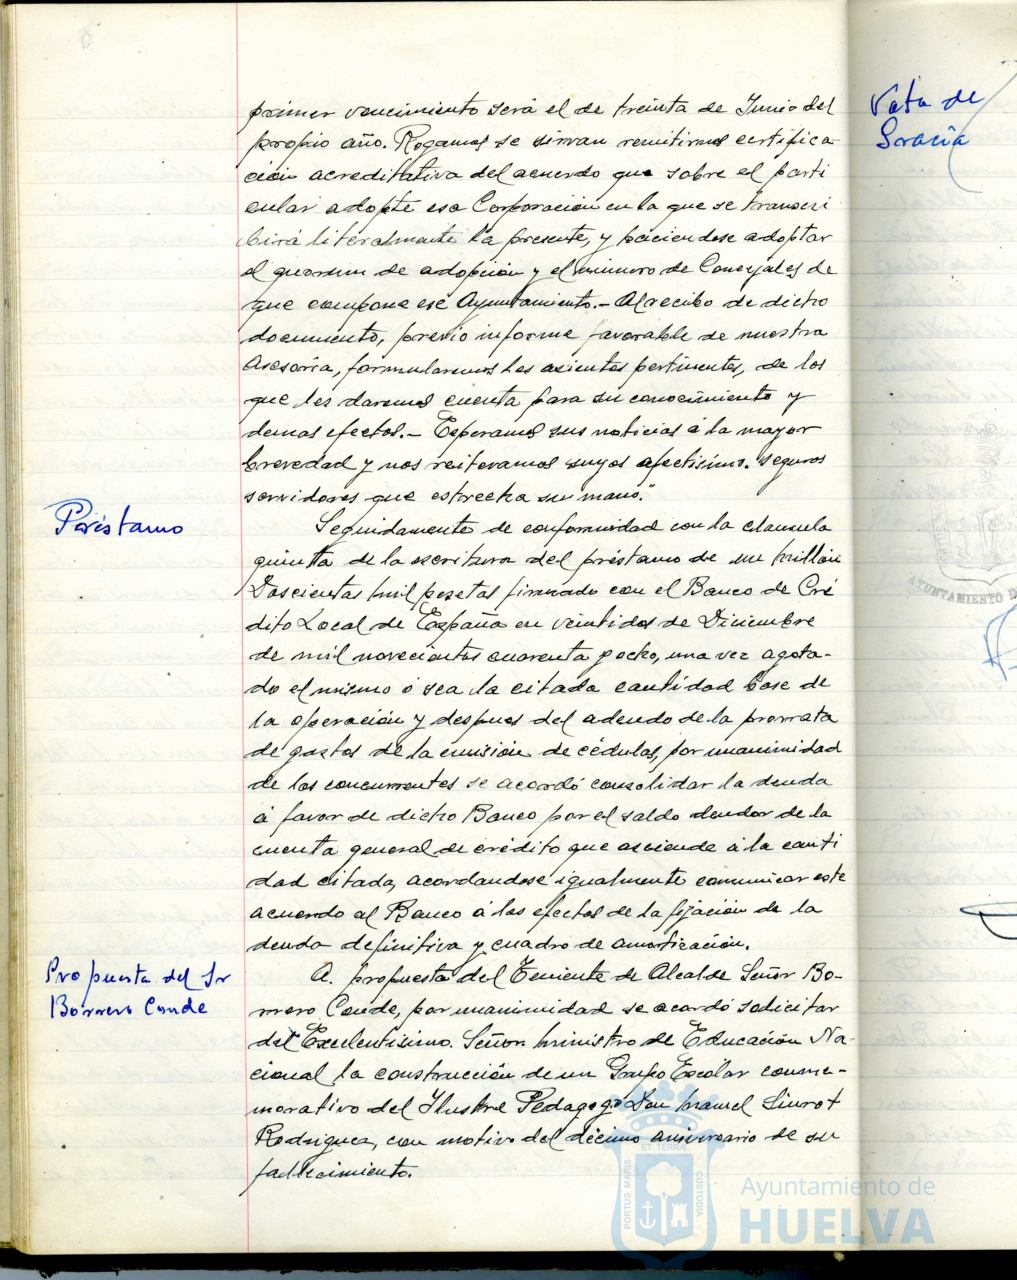 primer vencimiento será el de treinta de Junio del
propio año. Rogamos se sirvan remitirnos certifica-
ción acreditativa del acuerdo que sobre el parti
cular adopte esa Corporación en la que se transcri
birá literalmente la presente, y haciendose adoptar
el quorum de adopción y el número de Concejales de
que compone ese Ayuntamiento.- Al recibo de dicho
documento, previo informe favorable de nuestra
Asesoría, formularemos los asientos pertinentes, de los
que les daremos cuenta para su conocimiento y
demas efectos.- Esperamos sus noticias á la mayor
brevedad y nos reiteramos suyos afectísimo. seguros
servidores que estrecha su mano."
Préstamo
Seguidamente de conformidad con la clausula
quinta de la escritura del préstamo de un millón
Doscientas mil pesetas firmado con el Banco de Cré
dito Local de España en veintidos de Diciembre
de mil novecientos cuarenta y ocho, una vez agota-
do el mismo ó sea la citada cantidad base de
la operación y despues del adeudo de la prorrata
de gastos de la emisión de cédulas, por unanimidad
de los concurrentes se acordó consolidar la deuda
á favor de dicho Banco por el saldo deudor de la
cuenta general de crédito que asciende á la canti
dad citada, acordandose igualmente comunicar este
acuerdo al Banco á los efectos de la fijación de la
deuda definitiva y cuadro de amortización.
Propuesta del Sr
Borrero Conde
A. propuesta del Teniente de Alcalde Señor Bo-
rrero Conde, por unanimidad se acordó solicitar
del Excelentísimo. Señor Ministro de Educación Na-
cional la construcción de un Grupo Escolar conme-
morativo del Ilustre Pedagogo Don Manuel Siurot
Rodriguez, con motivo del décimo aniversario de su
fallecimiento.
Nota de
Gracia
AYUNTAMIENTO D
ET TERRAE
PORTUS MARIS
CUSTODIA
Ayuntamiento de
HUELVA